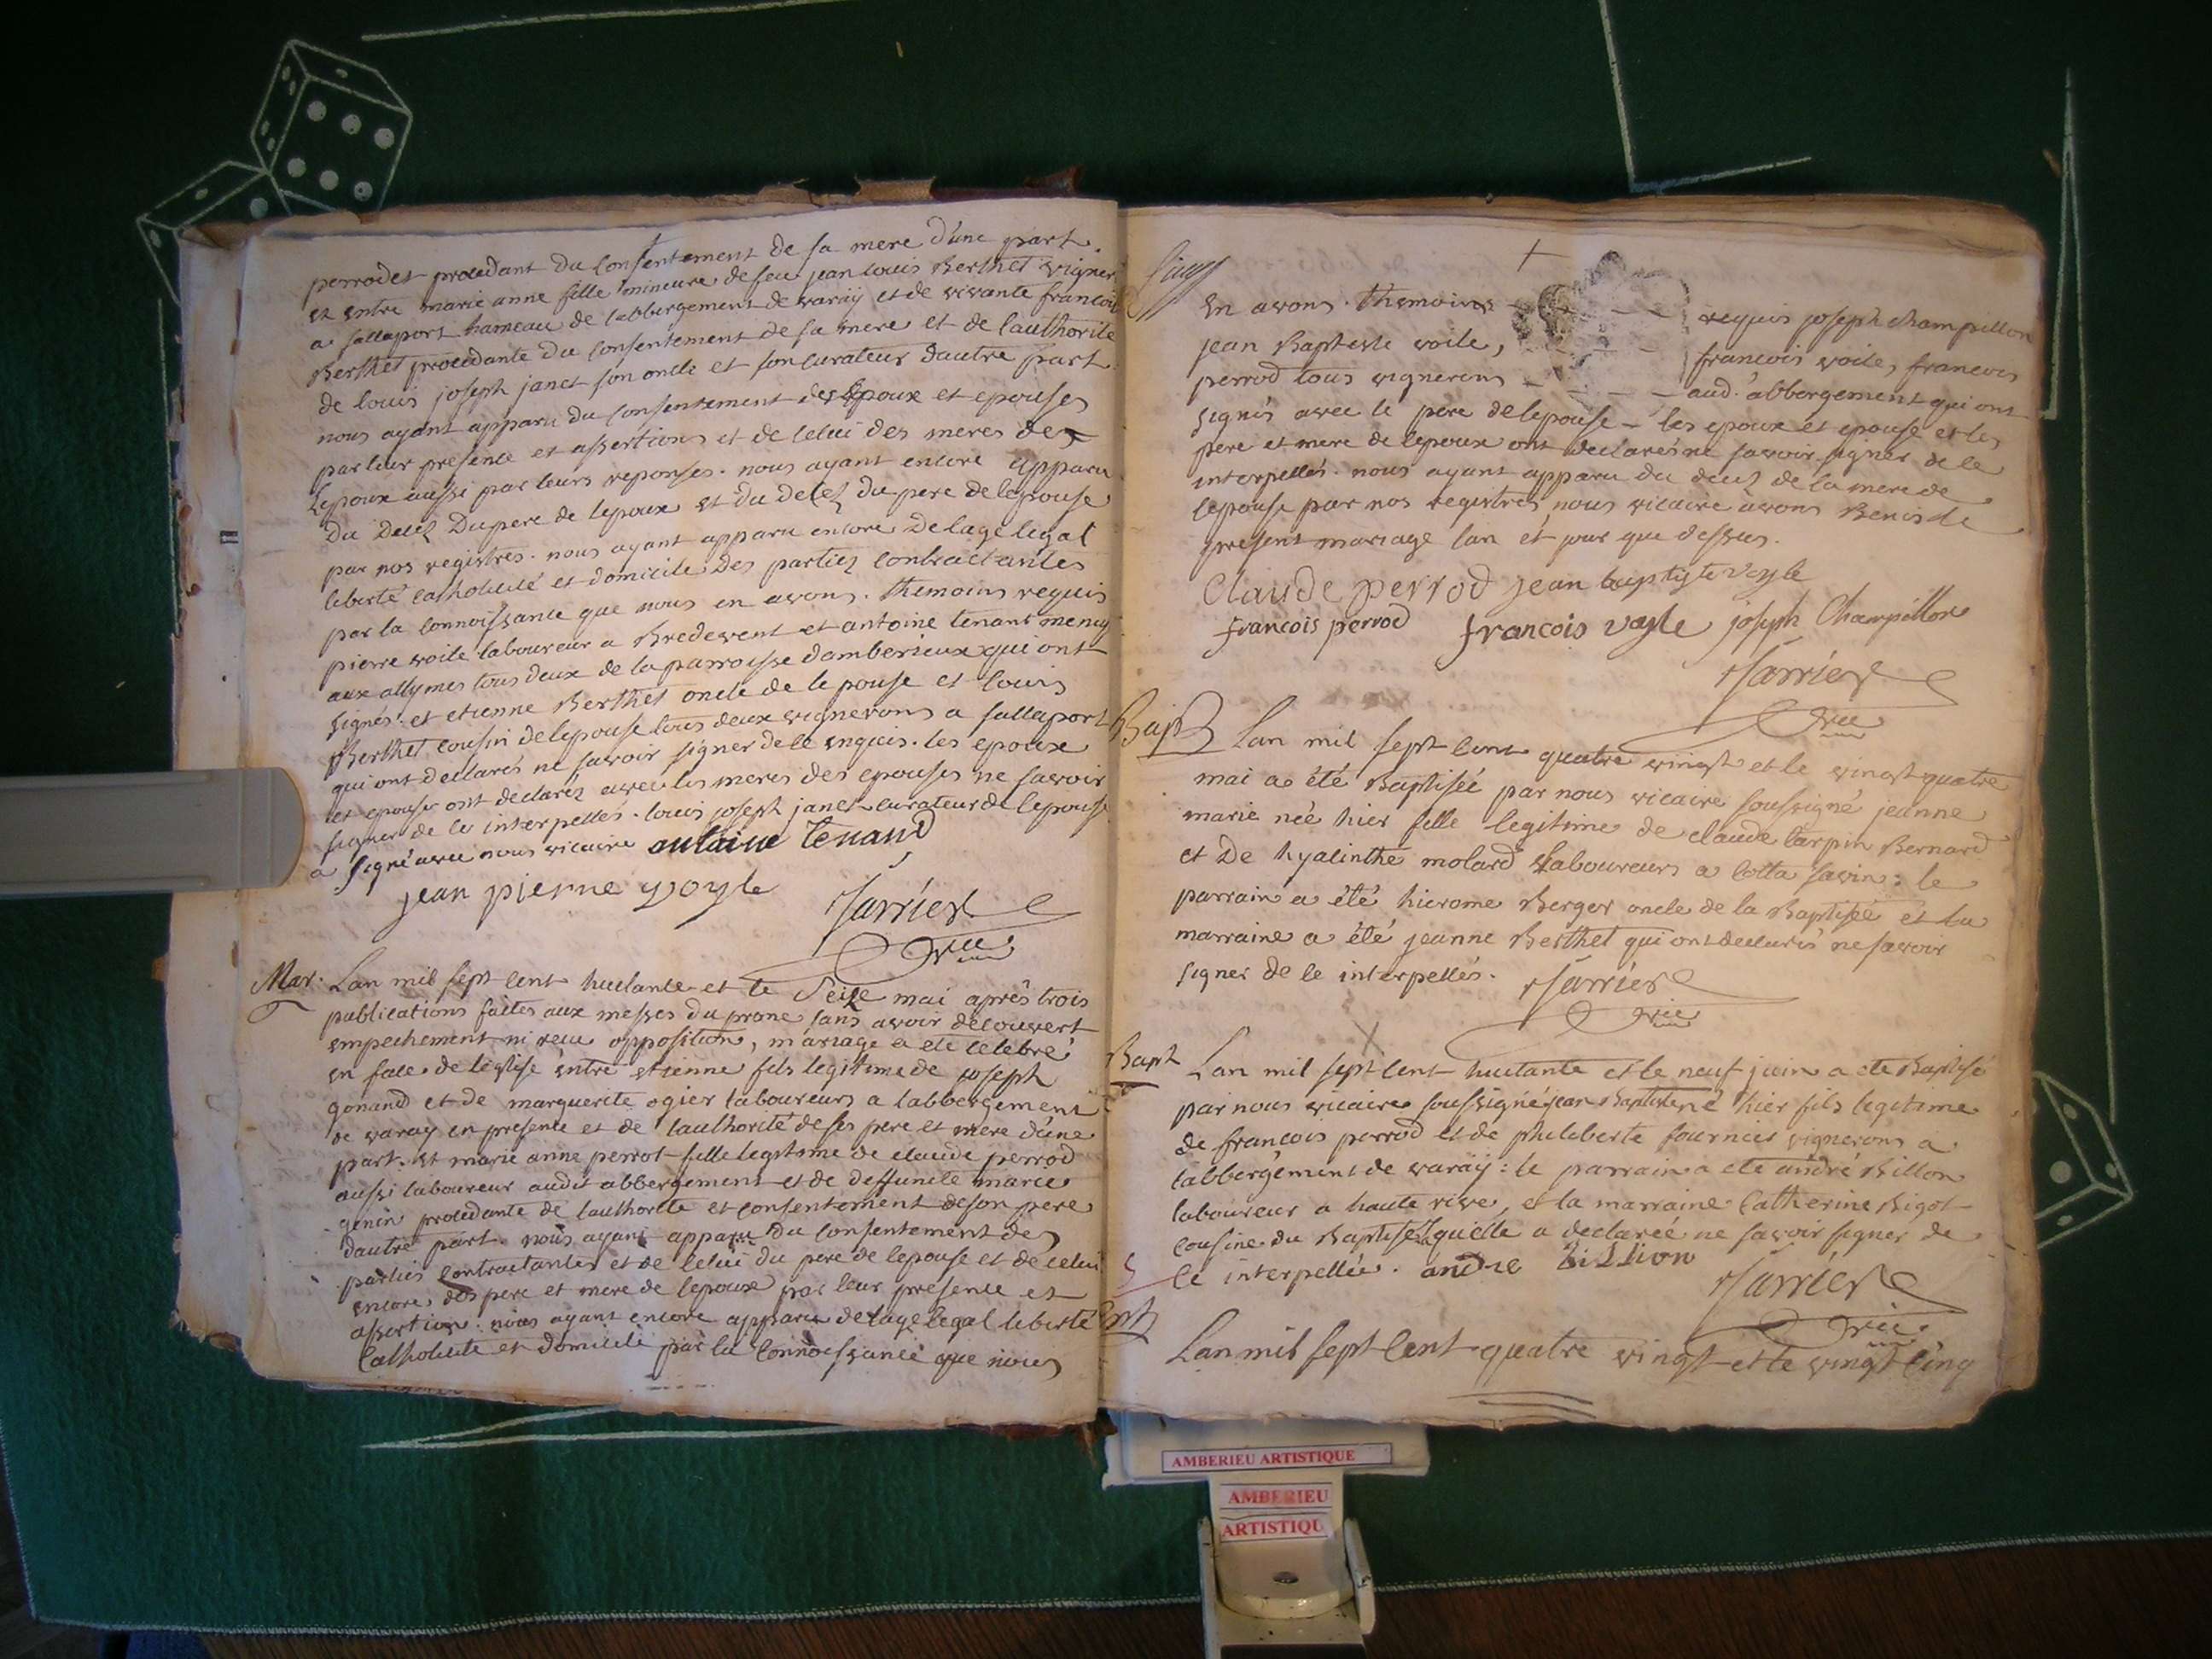 perrodet procedant du consentement de sa mere d'une part.
et entre marie anne fille mineure de feu jean louis Berthet vigner
a sallaport hameau de labbergement de varaÿ et de vivante francoise
Berthet procedante du consentement de sa mere et de lauthorité
de louis joseph janet son oncle et son curateur dautre part
nous ayant apparu du consentement des epoux et epouses
par leur presence et assertions et de celui des meres des
Lepoux aussi par leurs reponses. nous ayant encore apparu
du decez du pere de lepoux et du decez du pere de lepouse
par nos registres. nous ayant apparu encore de lage legal
liberté catholicité et domicile des partiez contractantes
par la connoissance que nous en avons. themoins requis
pierre voile laboureur a Bredevent et antoine tenant
aux allymes tous deux de la parroisse damberieux qui ont
signés. et etienne Berthet oncle de lepouse et louis
Berthet cousin de lepouse tous deux vignerons a sallaport
qui ont declarés ne savoir signer de ce enquis. les epoux
et epouse ont declarez avec les meres des epouses ne savoir
signer de ce interpellés. louis joseph janet curateur de lepouse
a signé avec nous vicaire antoine Tenand
jean pierne voyle
Sarrier
vic
Mar. Lan mil sept cent huctante et le seize mai aprês trois
publications faites aux messes du prone sans avoir decouvert
empechement ni recu opposition, mariage a eté célébré
en face de léglise entre etienne fils legitime de joseph
gonand et de marguerite ogier laboureurs a labbergement
de varay en presence et de lauthorité de ses pere et mere d'une
part. et marie anne perrot fille legitime de claude perrod
aussi laboureur audit abbergement et de deffuncte marie
genin procedante de lauthorité et consentement de son pere
dautre part. nous ayant apparu du consentement des
parties contractantes et de celui du pere de lepouse et de celui
encore des pere et mere de lepoux par leur presence et
assertion. nous ayant encore apparu de lage legal liberté
Catholicité et domicile par la connoissance que nous
+
en avons. themoins requis joseph champillon
jean Baptiste voile, francois voile, francois
perrod tous vignerons aud. abbergement qui ont
signés avec le père de lepouse - les epoux et epouse et les
pere et mere de lepoux ont declarés ne savoir signer de ce
interpellés. nous ayant apparu du decez de la mere de
lepouse par nos registres nous vicaire avons Benis le
present mariage lan et jour que dessus.
Claude perrod jean baptiste voyle
francois perrod francois voyle joseph Champillon
Sarrier
vic
Bapt Lan mil sept cent quatre vingt et le vingt quatre
mai a été Baptiséé par nous vicaire soussigné jeanne
marie néé hier fille legitime de claude carpin Bernard
et de hyacinthe molard laboureurs a cotta savin: le
parrain a été hierome Berger oncle de la Baptiséé et la
marraine a été jeanne Berthet qui ont declarés ne savoir
signer de ce interpellés.
Sarrier
vic
Bapt Lan mil sept cent huctante et le neuf juin a ete Baptisé
par nous vicaire soussigné jean Baptiste né hier fils legitime
de francois perrod et de philiberte fournier vignerons a
labbergement de varaÿ: le parrain a ete andré Billon
laboureur a haute rive, et la marraine Catherine Bigot
cousine du Baptisé laquelle a declaréé ne savoir signer de
ce interpelléé. andre billion
Sarrier
vic
Lan mil sept cent quatre vingt et le vingt cinq
AMBERIEU ARTISTIQUE
AMBERIEU
ARTISTIQU